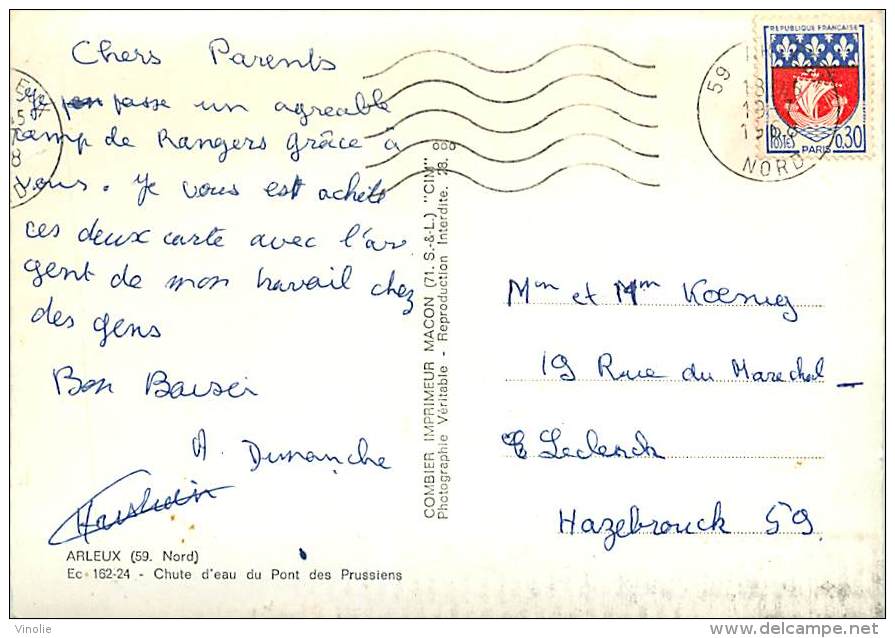 Chers Parents
Je passe un agreable
camp de Rangers grâce à
vous. Je vous est acheté
ces deux carte avec l'ar
gent de mon travail chez
des gens
Bon Baiser
A Dimanche
ARLEUX (59. Nord)
Ec 162-24 - Chute d'eau du Pont des Prussiens
COMBIER IMPRIMEUR MACON (71. S.-&-L.) "CIM"
Photographie Véritable - Reproduction Interdite.
REPUBLIQUE FRANÇAISE
POSTES PARIS 0,30
59
NORD
Mm et Mm Koenig
19 Rue du Marechal
Leclerck
Hazebrouck 59
Vinolie
delcampe.net